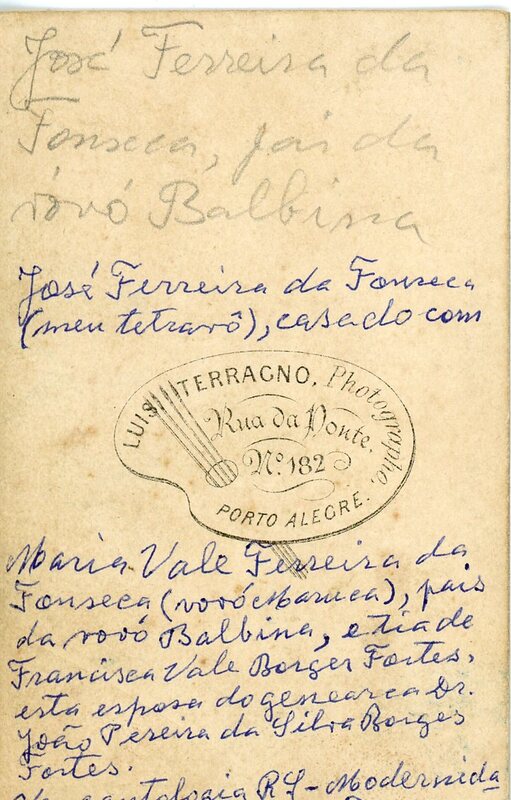 José Ferreira da
Fonseca, pai da
vovó Balbina
José Ferreira da Fonseca
(meu tetravô), casado com
LUIS TERRAGNO, Photographo,
Rua da Ponte,
Nº 182
PORTO ALEGRE.
Maria Vale Ferreira da
Fonseca (vovó Maruca), pais
da vovó Balbina, e tia de
Francisca Vale Borges Fortes,
esta esposa do genearca Dr.
João Pereira da Silva Borges
Fortes.
antologia RS - Modernida